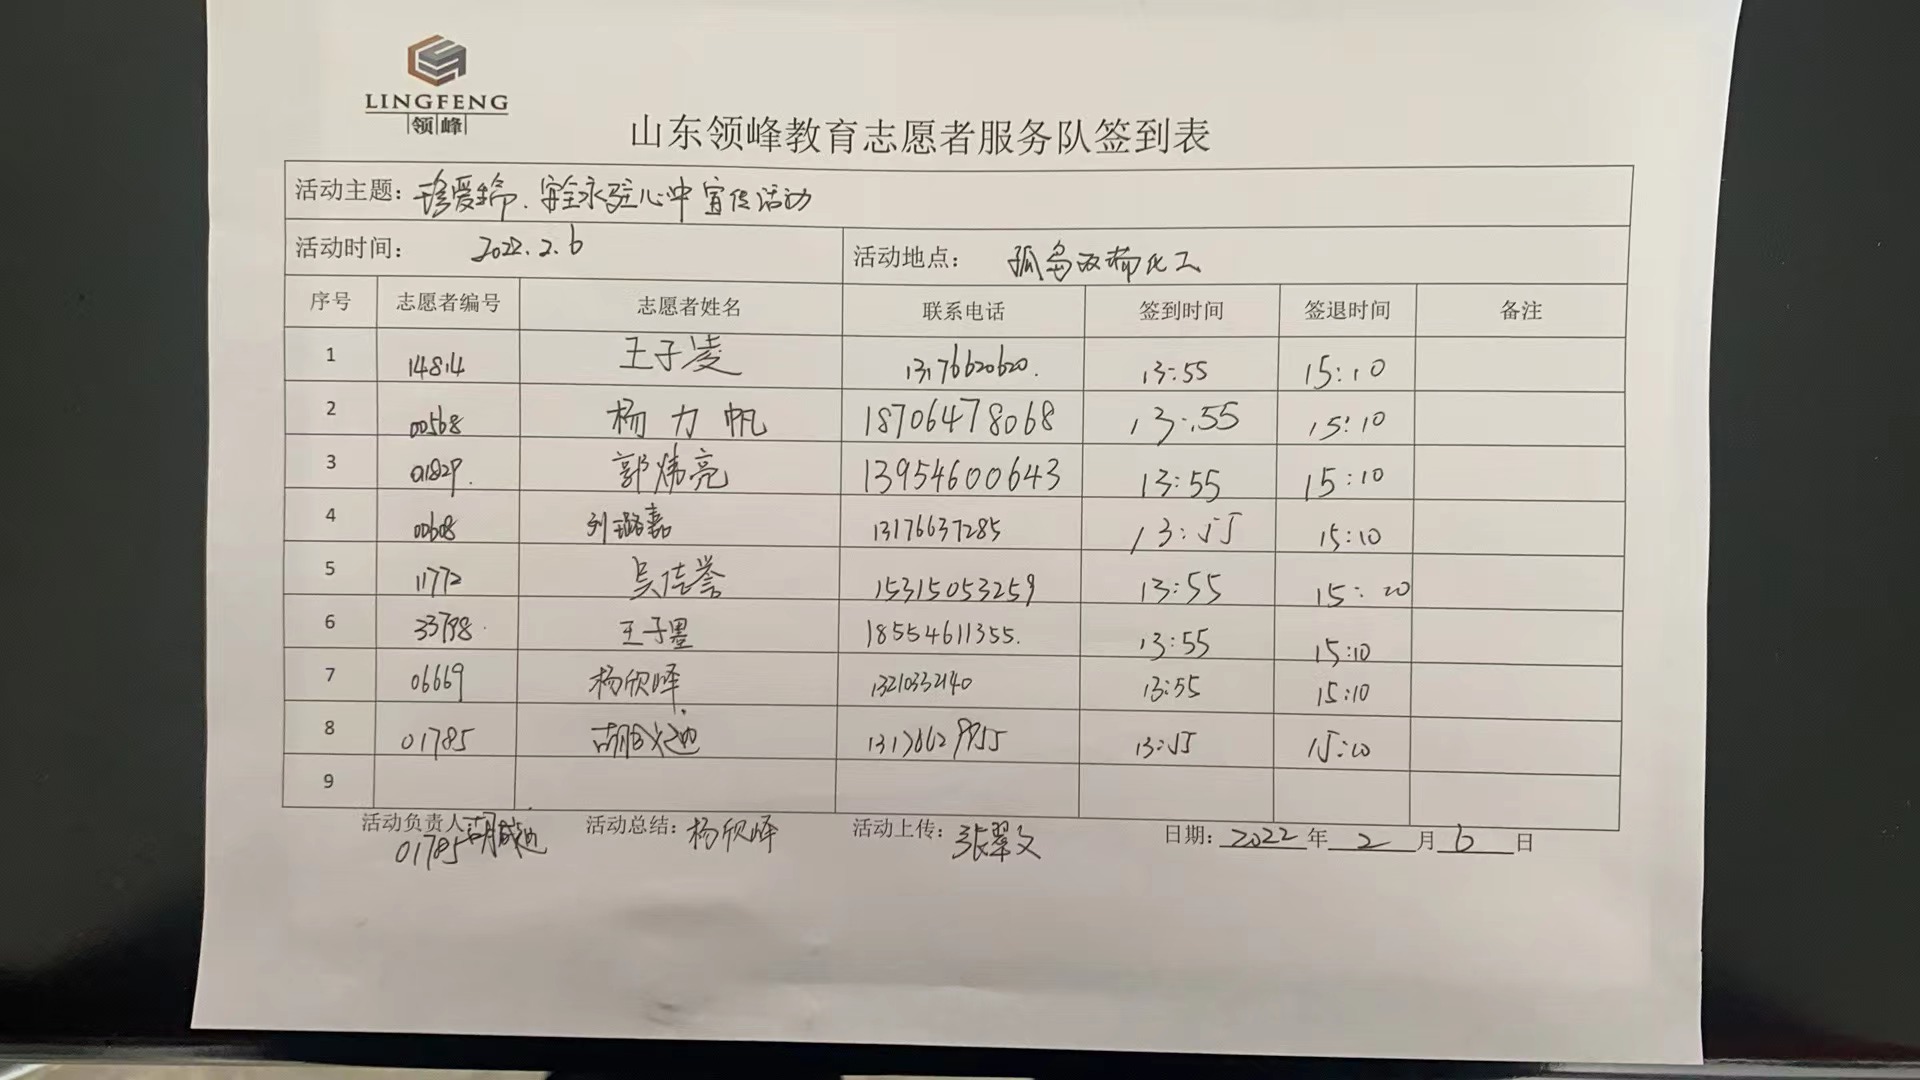 LINGFENG
领峰
山东领峰教育志愿者服务队签到表
活动主题：珍爱生命、安全永驻心中宣传活动
活动时间： 2022.2.6 活动地点： 孤岛双希化工
序号 志愿者编号 志愿者姓名 联系电话 签到时间 签退时间 备注
1 14814 王子凌 13176620620. 13:55 15:10
2 00568 杨力帆 18706478068 13:55 15:10
3 01829. 郭炜亮 13954600643 13:55 15:10
4 00608 刘璐嘉 13176637285 13:55 15:10
5 11772 吴佳誉 15315053259 13:55 15:20
6 33798 王子墨 18554611355. 13:55 15:10
7 06669 杨欣烨 13210332140 13:55 15:10
8 01785 胡 迪 13:55 15:10
9
活动负责人： 01785 胡 迪 活动总结：杨欣烨 活动上传：张翠文 日期：2022年2月6日